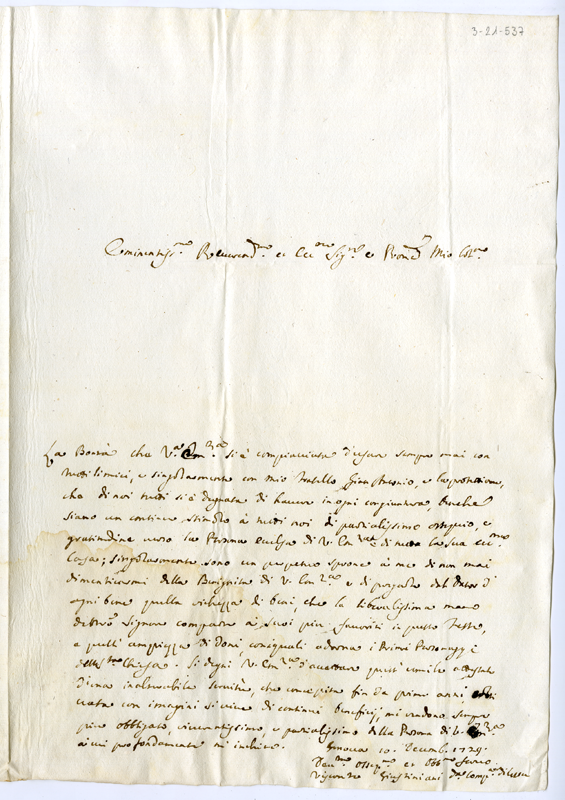 3-21-537
Eminentiss.mo Reverend.mo et Ecc.mo Sig.re e Pron.e Mio Col.mo
La Bontà che V.a Em.za si è compiacciuta d'usare sempre mai con
tutti li miei, e singolarmente con mio Fratello Gian Antonio, e la protezione,
che di noi tutti si è degnata di havere in ogni congiuntura, benche
siano un continuo stimolo à tutti noi di parzialissimo ossequio, e
gratitudine verso la Persona di V. Em.za e di tutta la sua Ecc.ma
Casa; singolarmente sono un perpetuo sprone à me di non mai
dimenticarmi della Benignità di V. Em.za e di pregarle dal Dator d'
ogni bene quella di beni, che la liberalissima mano
del Signore comparte à suoi più favoriti in queste Feste,
e quell' ampiezza di Doni, con quali adorna i Primi Personaggi
della Chiesa. Si degni V. Em.za d'accettare quest' umile attestato
d'una inalterabile servitù, che concepita fin da primi anni
con imagini sì vive di continui beneficij, mi rendono sempre
più obbligato, riverentissimo, e parzialissimo della Persona di V. Em.za
à cui profondamente mi inchino.
Genova 10. Decemb. 1729.
Dev.mo Osseq.mo et Obb.mo Servo
Giustiniani d.a Comp.a di Giesù